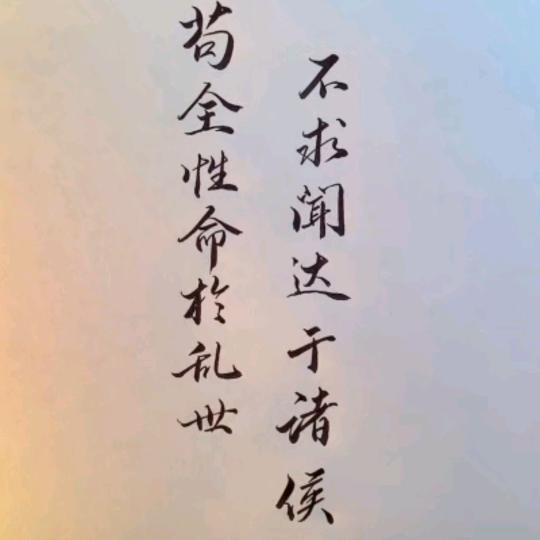 苟全性命於乱世
不求聞达于诸侯